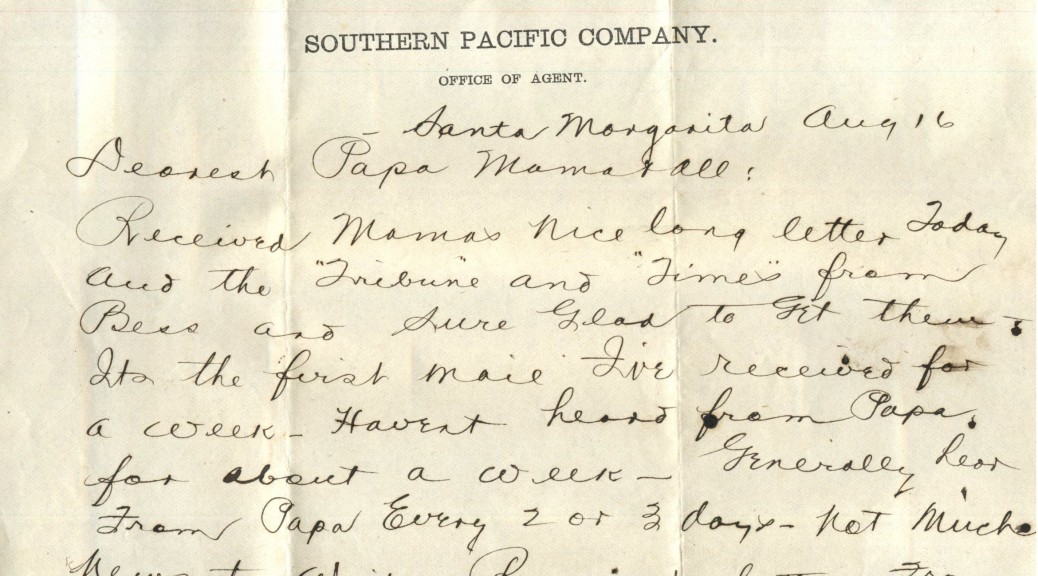 SOUTHERN PACIFIC COMPANY.
OFFICE OF AGENT.
– Santa Margarita Aug 16
Dearest Papa Mama & all:
Received Mamas Nice long letter Today
and the "Tribune" and "Times" from
Bess and Sure Glad to Get them.
Its the first mail I've received for
a week – Havent heard from Papa.
for about a week – Generally hear
From Papa Every 2 or 3 days – Not Much